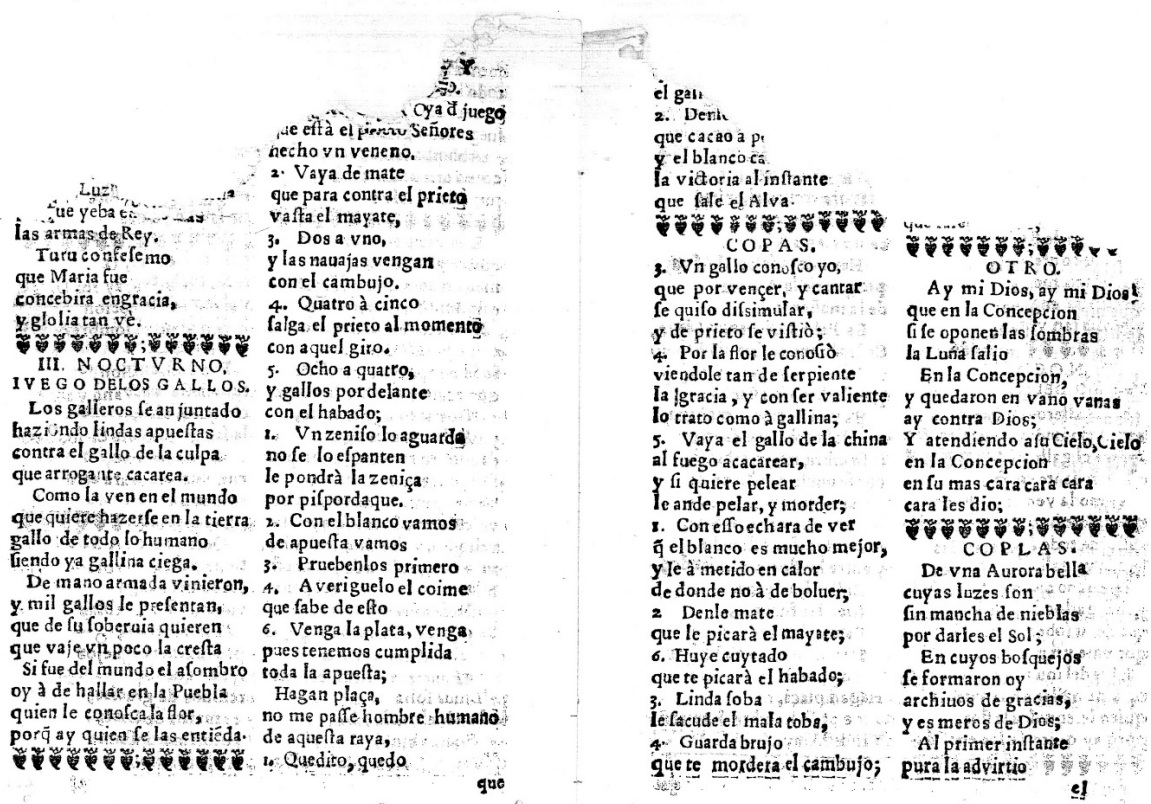 Luz
que yeba en
las armas de Rey.
Turu confesemo
que Maria fue
concebira engracia,
y glolia tan vè.
III. NOCTVRNO.
IVEGO DELOS GALLOS.
Los galleros ſe an juntado
haziendo lindas apueſtas
contra el gallo de la culpa
que arrogante cacarea.
Como la ven en el mundo
que quiere hazerſe en la tierra
gallo de todo lo humano
ſiendo ya gallina ciega.
De mano armada vinieron,
y mil gallos le preſentan,
que de ſu ſoberuia quieren
que vaje vn poco la creſta
Si fue del mundo el aſombro
oy à de hallar en la Puebla
quien le conoſca la flor,
porq̃ ay quien ſe las entiẽda.
Y
Oya đ juego
que eſtà el prieto Señores
hecho vn veneno.
2. Vaya de mate
que para contra el prieto
vaſta el mayate,
3. Dos a vno,
y las nauajas vengan
con el cambujo.
4. Quatro à cinco
ſalga el prieto al momento
con aquel giro.
5. Ocho a quatro,
y gallos por delante
con el habado;
1. Vn zeniſo lo aguarda
no ſe lo eſpanten
le pondrà la zeniça
por piſpordaque.
2. Con el blanco vamos
de apueſta vamos
3. Pruebenlos primero
4. Averiguelo el coime
que ſabe de eſto
6. Venga la plata, venga
pues tenemos cumplida
toda la apueſta;
Hagan plaça,
no me paſſe hombre humano
de aqueſta raya,
1. Quedito, quedo
que
el gall
2. Denle
que cacao a p
y el blanco ca
la victoria al inſtante
que ſale el Alva.
COPAS.
3. Vn gallo conoſco yo,
que por vençer, y cantar
ſe quiſo diſsimular,
y de prieto ſe viſtiò;
4. Por la flor le conoſiò
viendole tan de ſerpiente
la gracia, y con ſer valiente
lo trato como à gallina;
5. Vaya el gallo de la china
al fuego acacarear,
y ſi quiere pelear
le ande pelar, y morder;
1. Con eſſo echara de ver
q̃ el blanco es mucho mejor,
y le à metido en calor
de donde no à de boluer;
2 Denle mate
que le picarà el mayate;
6. Huye cuytado
que te picarà el habado;
3. Linda ſoba
le ſacude el mala toba,
4. Guarda brujo
que te mordera el cambujo;
OTRO.
Ay mi Dios, ay mi Dios!
que en la Concepcion
ſi ſe oponen las ſombras
la Luna ſalio
En la Concepcion,
y quedaron en vano vanas
ay contra Dios;
Y atendiendo aſu Cielo, Cielo
en la Concepcion
en ſu mas cara cara cara
cara les dio;
COPLAS.
De vna Aurora bella
cuyas luzes ſon
ſin mancha de nieblas
por darles el Sol;
En cuyos boſquejos
ſe formaron oy
archiuos de gracias,
y es meros de Dios;
Al primer inſtante
pura la advirtio
el